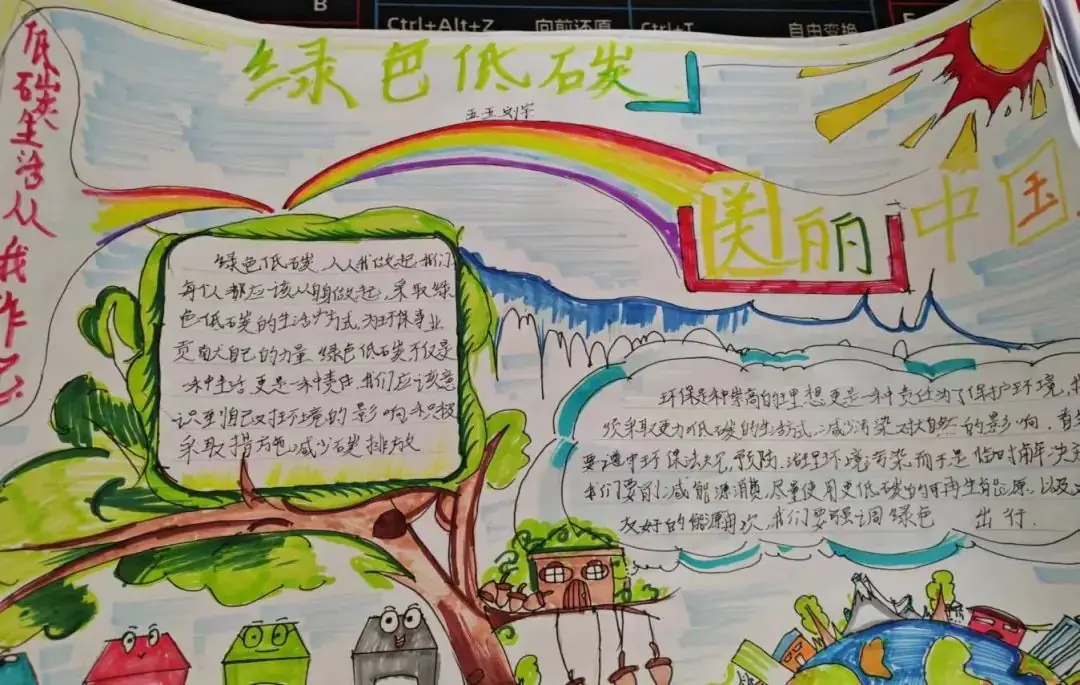 B
Ctrl+Alt+Z 向前还原 Ctrl+T 自由变换
低碳生活从我作
绿色低碳
美丽中国
绿色低碳,人人我做起,我们
每个人都应该从自身做起,采取绿
色低碳的生活方式,为环保事业
贡献自己的力量,绿色低碳不仅是
一种生活更是一种责任,我们应该意
识到自己对环境的影响积极
采取措施减少石碳排放
环保是种崇高的理想更是一种责任为了保护环境,我
须采取更为低碳的生活方式,减少污染对大自然的影响,首
要遵守环保法,预防、治理环境污染而于是
我们要削减能源消费,尽量使用更低碳的可再生能源,以及
友好的能源再次,我们要强调绿色 出行.